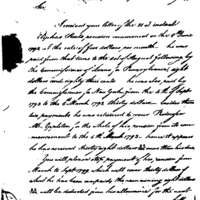 Sir,
I received your letter of the 21st instant
Elephas Hart's pension commenced on the 5 June
1792 at the rate of five dollars per month. he was
paid from that time to the end of August following by
the Commissioner of Loans, in Pennsylvania, eight
dollars and eighty three cents. he was also paid by
the Commissioner, for New York, from the 1st of Sept
1792 to the 4 March 1793 thirty dollars. besides these
two payments he was owned by your Predecessor
Mr. Appleton for the whole of his pension from its com-
mencement to the 4th March 1793. hence it appears
he has received thirty eight dollars more than his due.
You will please stop payment of his pension from
March to Sept 1793 which will cover thirty dollars
that he has been overpaid the remaining eight dollars
will be deducted from his allowance for the next